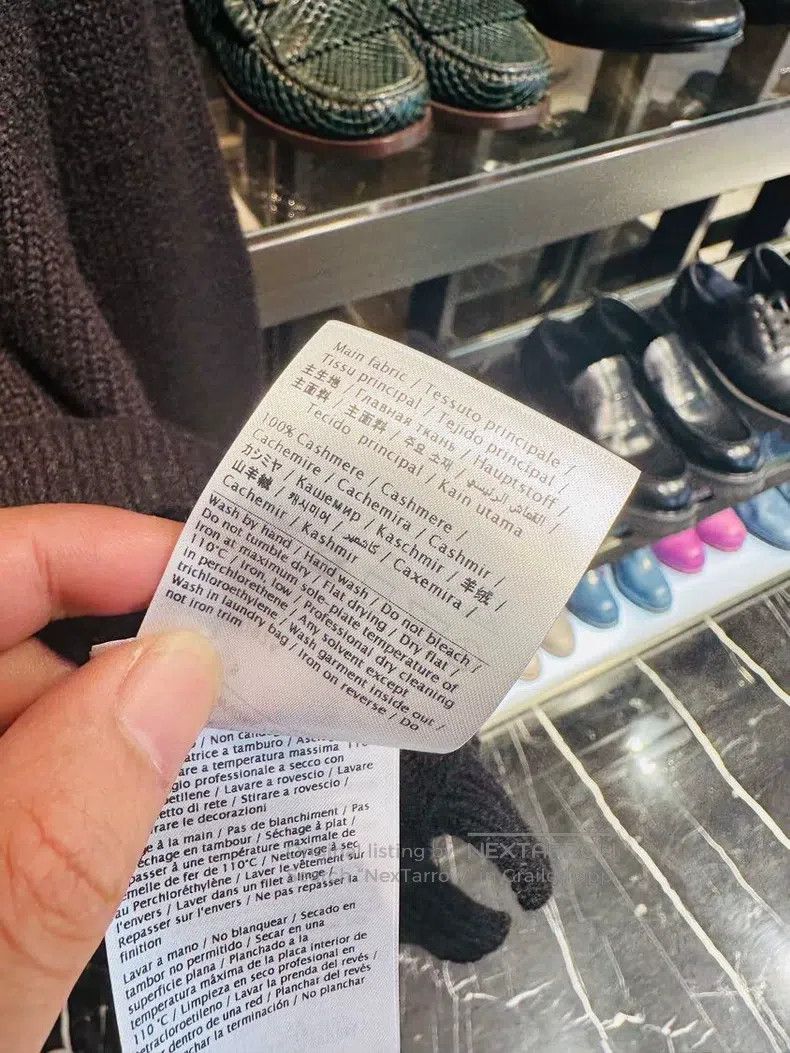 Main fabric / Tessuto principale /
Tissu principal / Tejido principal /
主生地 / Главная ткань / Hauptstoff /
主面料 / 主要面料 / 주요 소재 / القماش الرئيسي /
Tecido principal / Kain utama
100% Cashmere / Cashmere /
Cachemire / Cachemira / Cashmir /
カシミヤ / Кашемир / Kaschmir / 羊绒 /
山羊絨 / 캐시미어 / كشمير / Caxemira /
Cachemir / Kashmir
Wash by hand / Hand wash / Do not bleach /
Do not tumble dry / Flat drying / Dry flat /
Iron at maximum sole plate temperature of
110°C / Iron, low / Professional dry cleaning
in perchlorethene / Any solvent except
trichloroethylene / Wash garment inside out /
Wash in laundry bag / Iron on reverse / Do
not iron trim
/ Non
atrice a tamburo /
are a temperatura massima 110
gio professionale a secco con
etilene / Lavare a rovescio / Lavare
etto di rete / Stirare a rovescio /
rare le decorazioni
e à la main / Pas de blanchiment / Pas
échage en tambour / Séchage à plat /
passer à une température maximale de
emelle de fer de 110°C / Nettoyage à sec
au Perchloréthylène / Laver le vêtement sur
l'envers / Laver dans un filet à linge /
Repasser sur l'envers / Ne pas repasser la
finition
Lavar a mano / No blanquear / Secado en
tambor no permitido / Secar en una
superficie plana / Planchado a la
temperatura máxima de la placa interior de
110 °C / Limpieza en seco profesional en
etracloroetileno / Lavar la prenda del revés /
r dentro de una red / Planchar del revés /
char la terminación / No planchar
listing by NEXTARROW
"NexTarrow" in Grailed